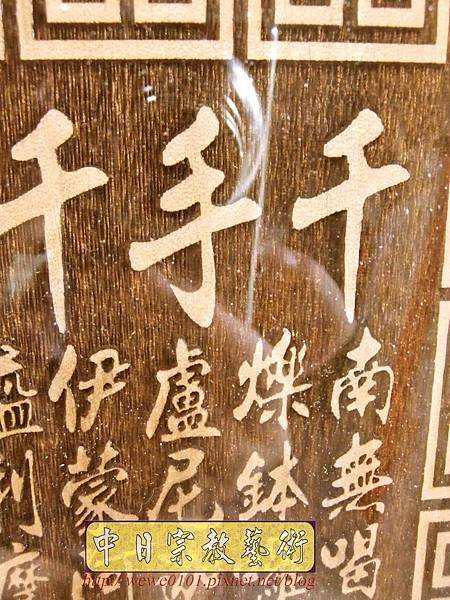 千手千
南無喝
爍鉢
盧尼
伊蒙
中日宗教藝術
http://wewe0101.pixnet.net/blog